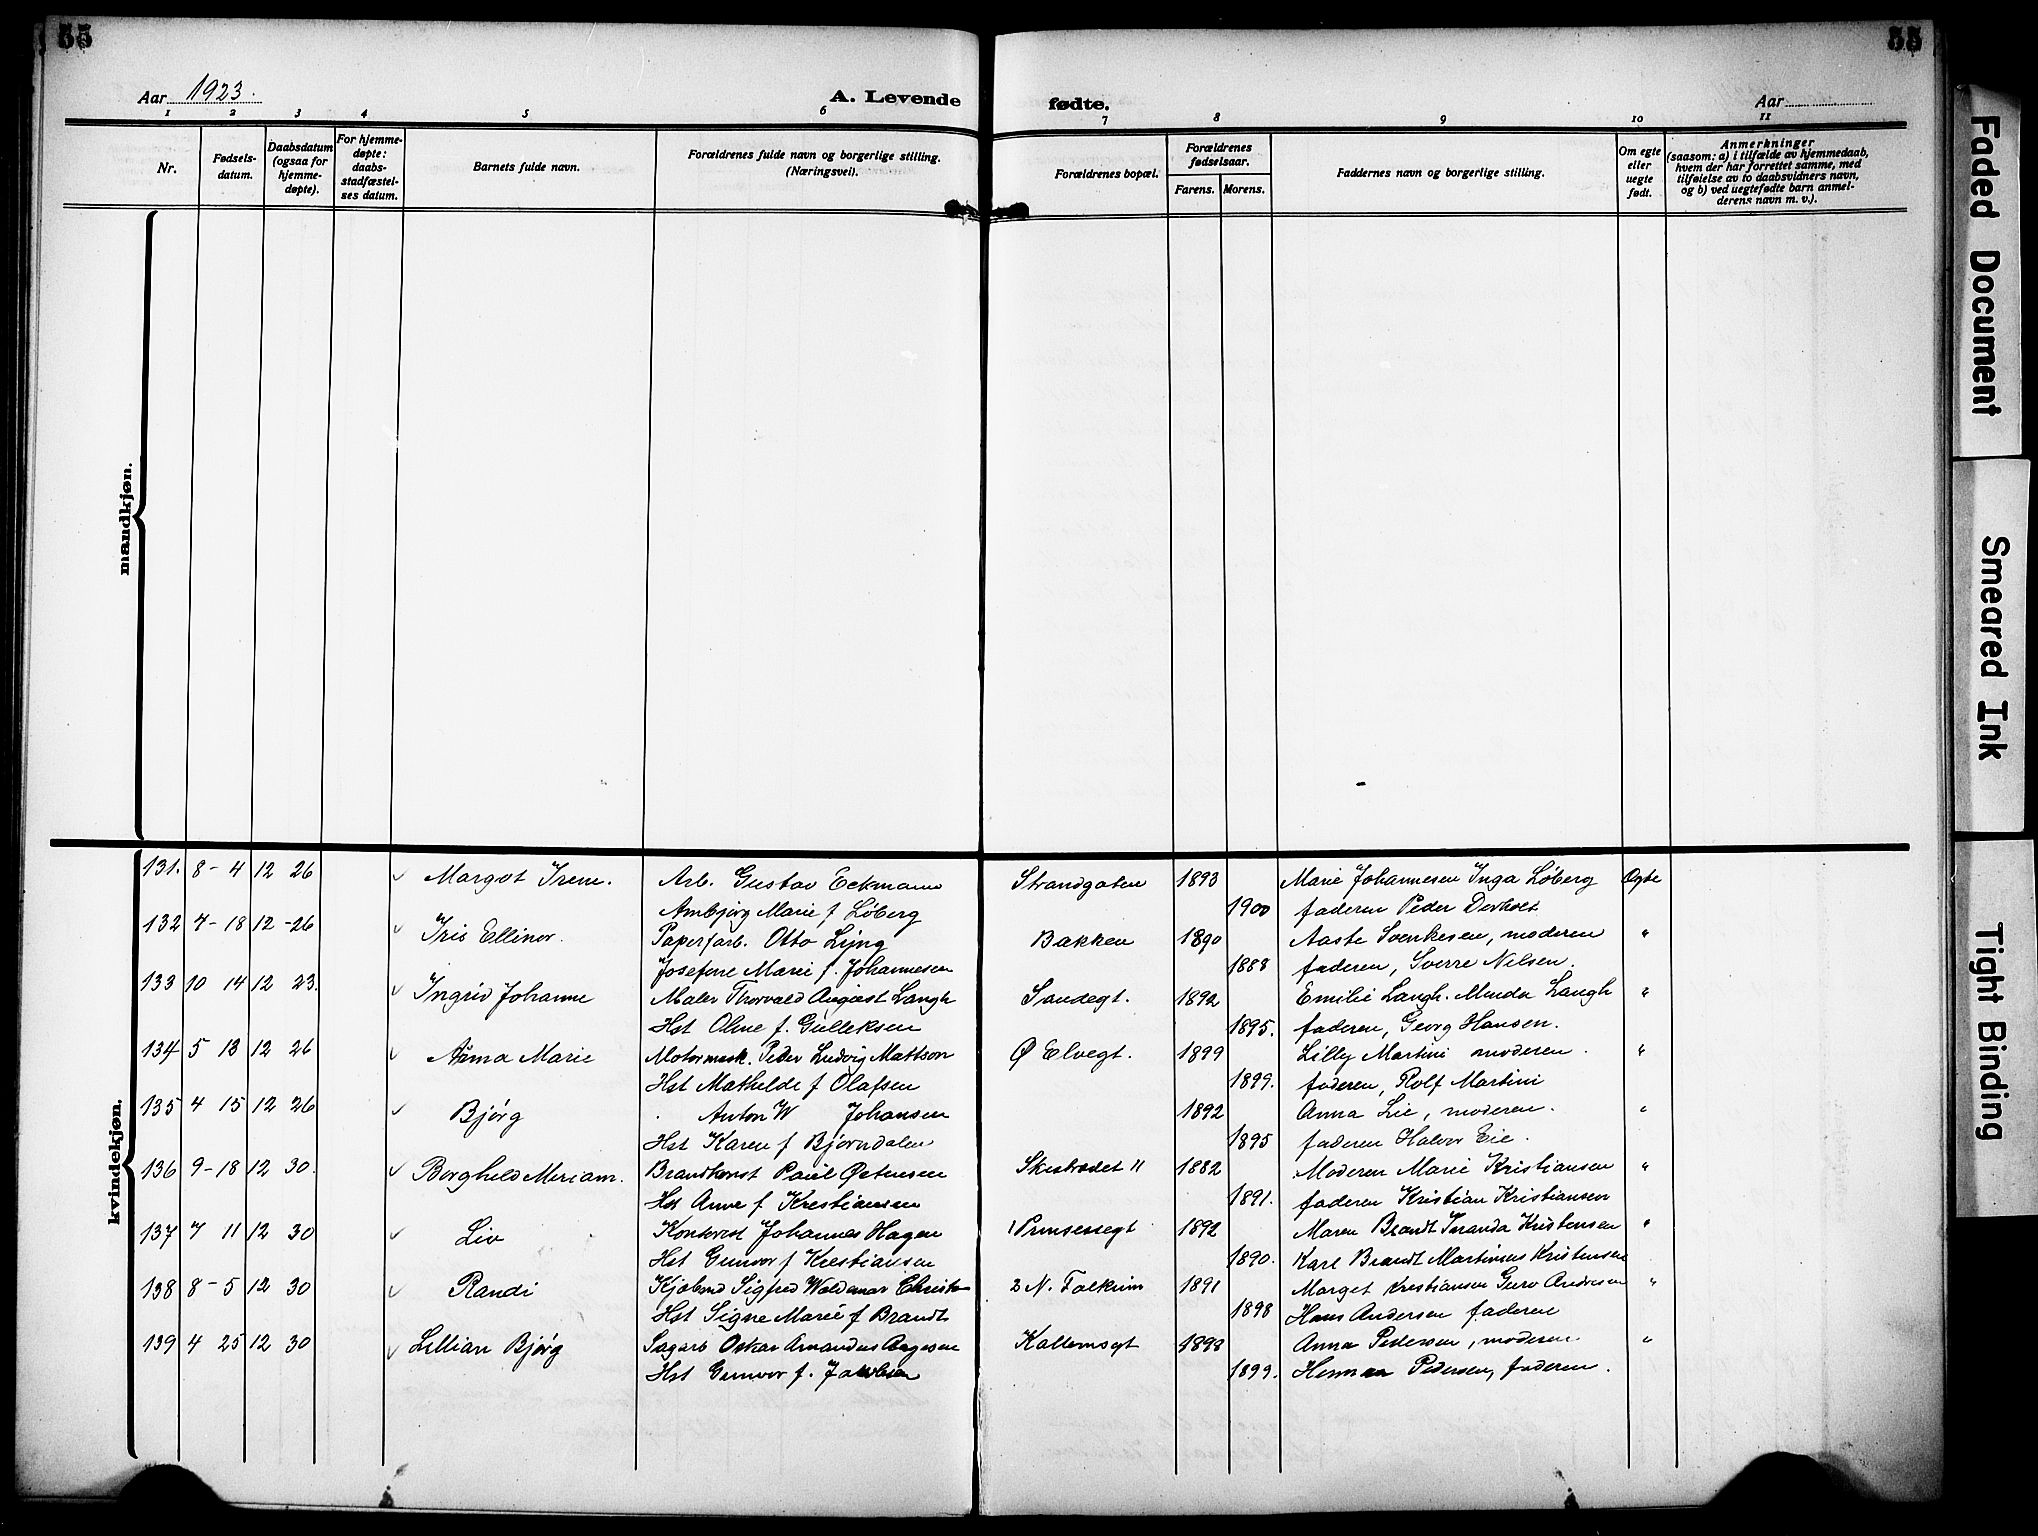 55
55
Aar 1923.
A. Levende
fødte.
Aar
1 2 3 4 5 6 7 8 9 10 11
Nr.
Fødsels-
datum.
Daabsdatum
(ogsaa for
hjemme-
døpte).
For hjemme-
døpte:
daabs-
stadfæstel-
ses datum.
Barnets fulde navn.
Forældrenes fulde navn og borgerlige stilling.
(Næringsvei).
Forældrenes bopæl.
Forældrenes
fødselsaar.
Farens. Morens.
Faddernes navn og borgerlige stilling.
Om egte
eller
uegte
født.
Anmerkninger
(saasom: a) i tilfælde av hjemmedaab,
hvem der har forrettet samme, med
tilføielse av to daabsvidners navn,
og b) ved uegtefødte barn anmel-
derens navn m. v.).
mandkjøn.
kvindekjøn.
131. 8 - 4 12 26 Margot Irene. Arb. Gustav Eckmann Strandgaten 1893 Marie Johannesen Inga Løberg Egte
Arnbjørg Marie f Løberg 1900 faderen Peder
132 4 - 18 12 - 26 Iris Ellinor. Papirfarb. Otto Ljng Bakken 1890 Aaste Svenkesen, moderen "
Josefine Marie f. Johannesen 1888 faderen, Sverre Nilsen.
133 10 14 12 23. Ingrid Johanne Maler Thorvald August Langh Sandegt. 1892 Emilie Langh. Minda Langh "
Hst Oline f. Gulleksen 1895. faderen, Georg Hansen.
134 5 13 12 26 Anna Marie Motormask. Peder Ludvig Mattson Ø Elvegt. 1899 Lilly Martini moderen. "
Hst Mathilde f Olafsen 1899. faderen, Rolf Martini
135 4 15 12 26 Bjørg Anton W Johansen 1892 Anna Lie, moderen. "
Hst Karen f Bjørndalen 1895 faderen Halvor Eie.
136 9 - 18 12 30. Borghild Miriam. Brandkonst Paul Østensen 11 1882 Moderen Marie Kristiansen "
Hst Anne f Kristiansen 1891. faderen Kristian Kristiansen
137 7 11 12 30 Liv Kontorist Johannes Hagen 1 Prinsessegt 1892 Maren Brandt Kristensen "
Hst Gunvor f Kristiansen 1890. Karl Brandt Martinius Kristensen
138 8 - 5 12 30 Randi Kjøbmd Sigfred Waldemar 2 N. Falkum 1891 Marget Kristiansen Guro Andresen "
Hst Signe Marie f Brandt 1898 Hans Andersen faderen
139 4 25 12 30 Lillian Bjørg Sagarb Oskar Amandus Aagesen Kallemsgt 1899 Anna Pedersen, moderen. "
Hst Gunvor f. Jakobsen 1899. Herman Pedersen, faderen.
Faded Document
Smeared Ink
Tight Binding